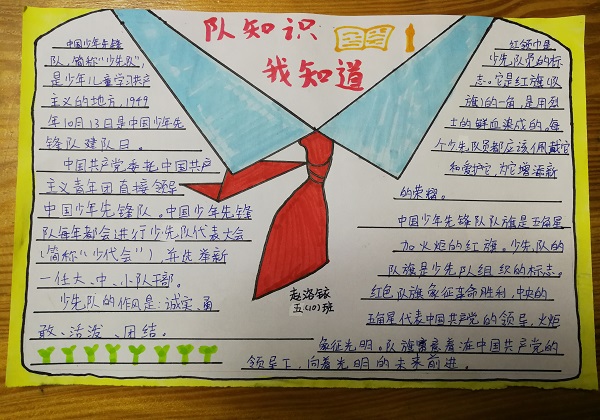 队知识
我知道
中国少年先锋
队,简称“少先队”,
是少年儿童学习共产
主义的地方,1949
年10月13日是中国少年先
锋队建队日。
中国共产党委托中国共产
主义青年团直接领导
中国少年先锋队。中国少年先锋
队每年都会进行少先队代表大会
(简称“少代会”),并此举新
一任大、中、小队干部。
少先队的作风是:诚实、勇
敢、活泼、团结。
红领巾是
少先队员的标
志。它是红旗(队
旗)的一角,是用烈
士的鲜血染成的。每
个少先队员都应该佩戴它
和爱护它,为它增添新
的荣耀。
中国少年先锋队队旗是五角星
加火炬的红旗。少先队的
队旗是少先队组织的标志。
红色队旗象征革命胜利,中央的
五角星代表中国共产党的领导,火炬
象征光明。队旗寓意着准中国共产党的
领导下,向着光明的未来前进。
赵洛铱
五(10)班